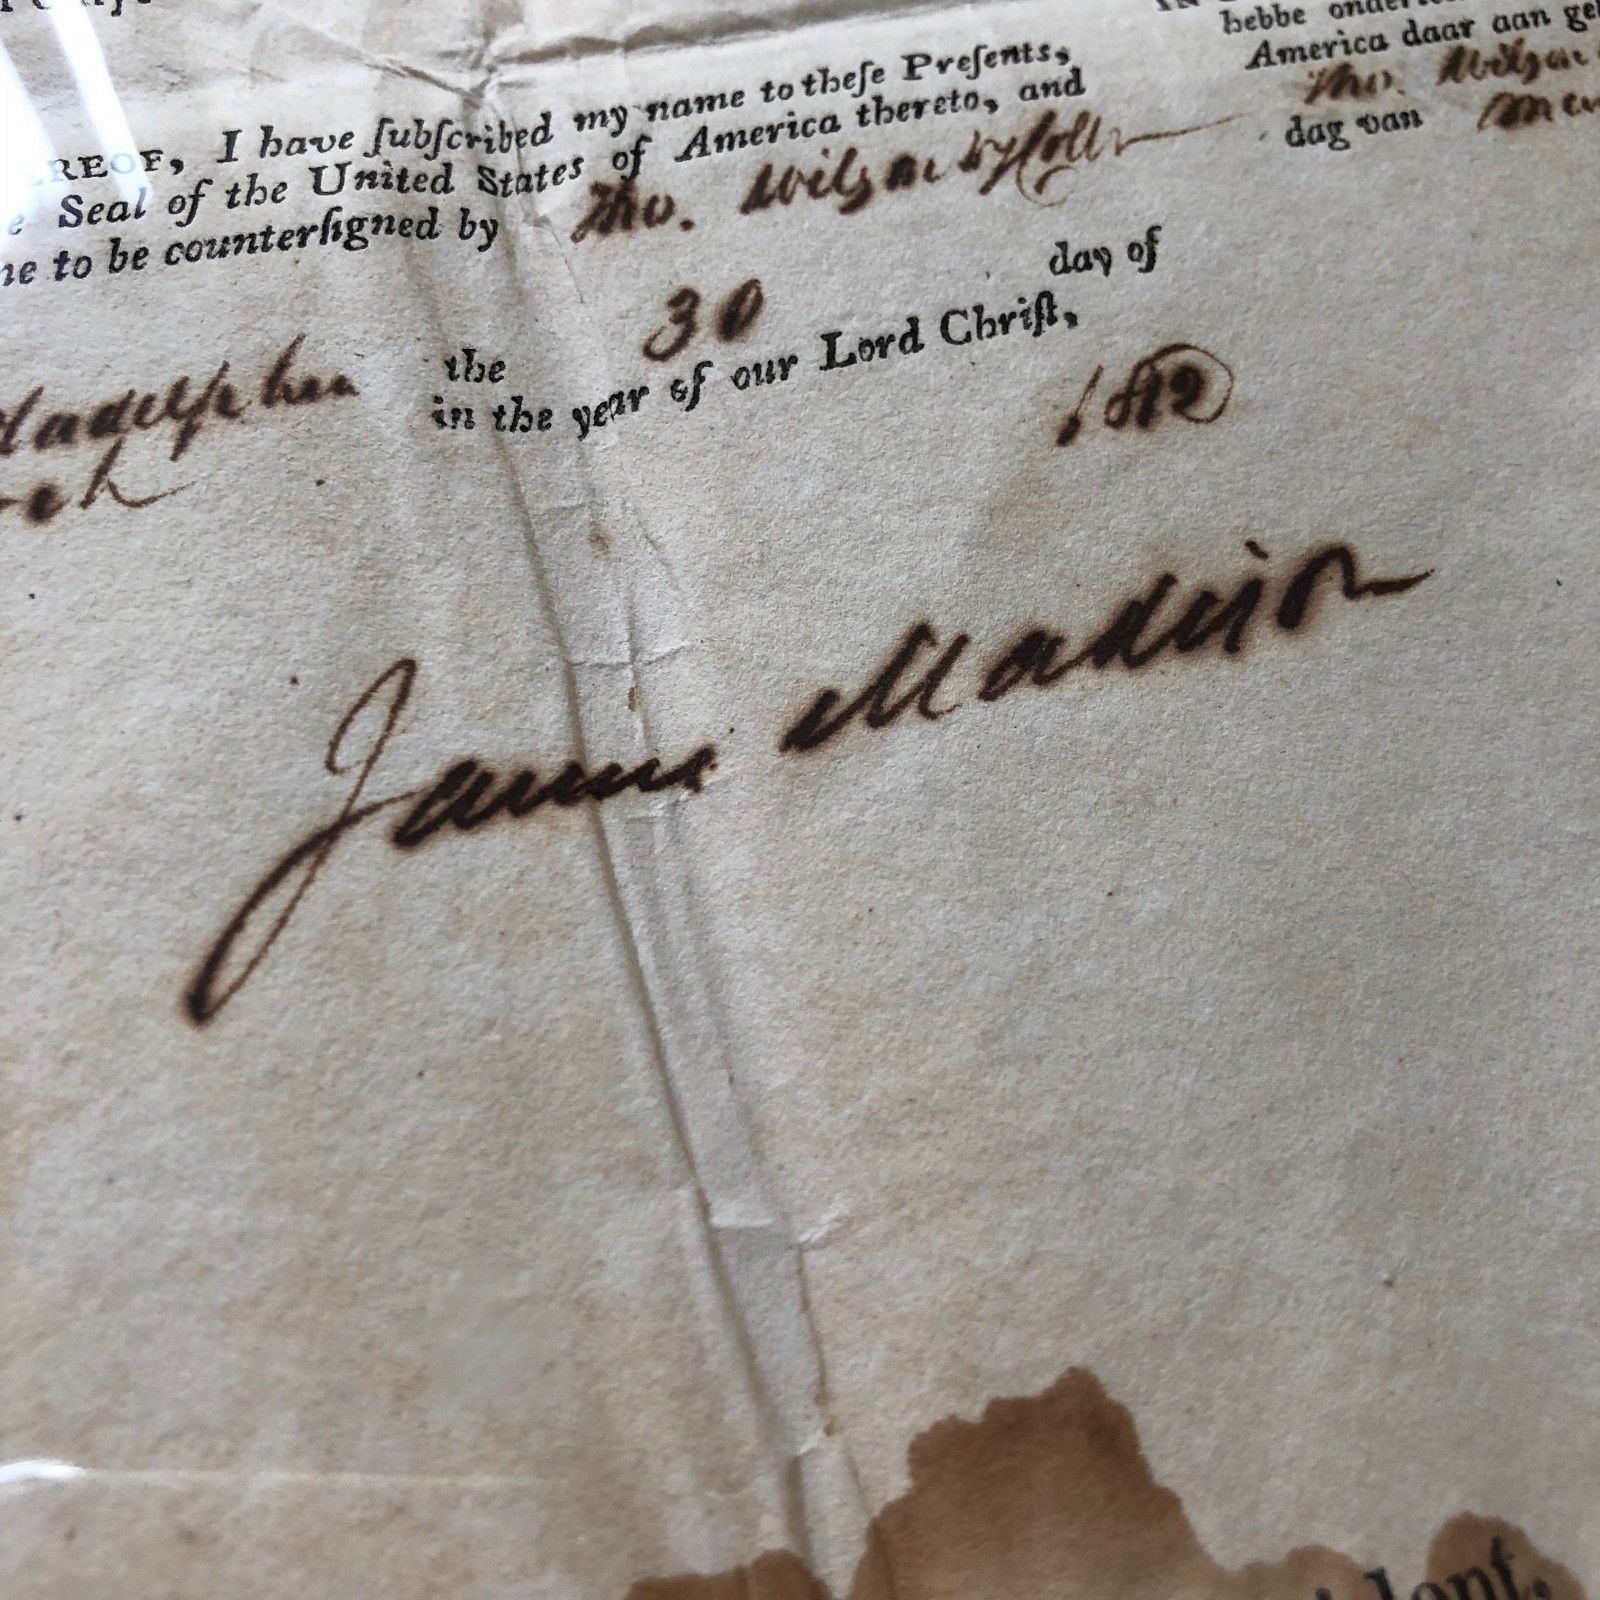 REOF, I have ſubſcribed my name to theſe Preſents,
e Seal of the United States of America thereto, and
ne to be counterſigned by Tho. Wilson Dy Coll
ladelphia the 30 day of
in the year of our Lord Chriſt,
1812
James Madison
hebbe
America daar aan ge
Tho. Wilson
dag van
ident,